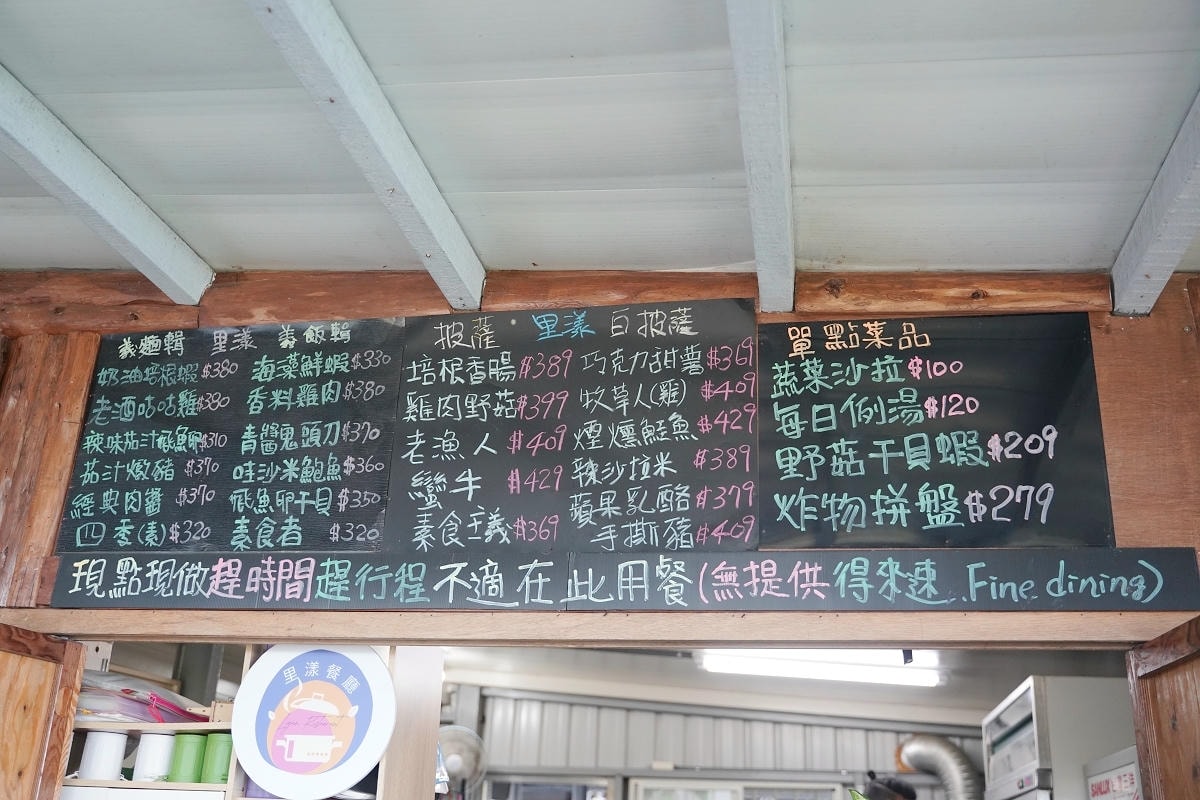 義麵輯 里漾 義飯輯
奶油培根蝦$380
老酒咕咕雞$380
辣味茄汁飛魚卵$310
茄汁燉豬 $370
經典肉醬 $370
四季(素)$320
海藻鮮蝦$330
香料雞肉$380
青醬鬼頭刀$370
哇沙米鮑魚$360
飛魚卵干貝$350
素食者 $320
披薩 里漾 白披薩
培根香腸$389
雞肉野菇$399
老漁人 $409
蠻牛 $429
素食主義$369
巧克力甜薯$369
牧草人(雞) $409
煙燻鮭魚$429
辣沙拉米 $389
蘋果乳酪$379
手撕豬$409
單點菜品
蔬菜沙拉$100
每日例湯$120
野菇干貝蝦$209
炸物拼盤$279
現點現做趕時間趕行程不適在此用餐(無提供得來速..Fine dining)
里漾餐廳
SANLUX 台灣三洋